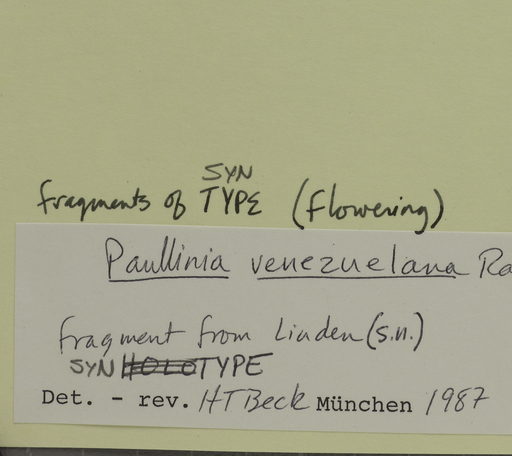 SYN
fragments of TYPE (flowering)
Paullinia venezuelana Ra
fragment from Linden (s.n.)
SYN HOLOTYPE
Det. - rev. HTBeck München 1987